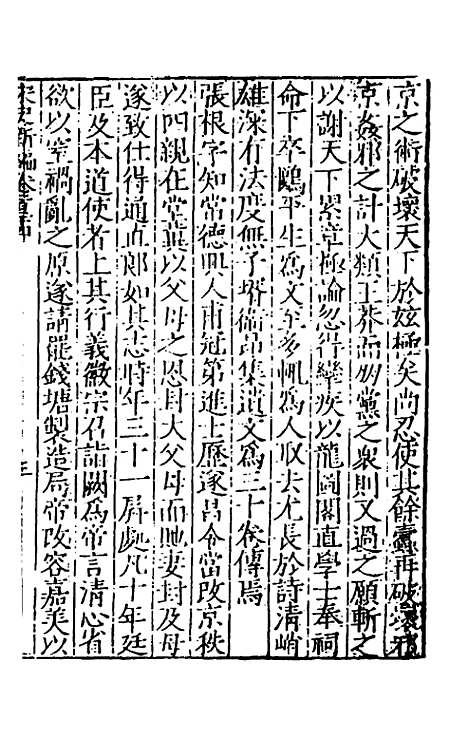 京之術破壞天下於玆極矣尚忍使其餘蠹再破壞邪
京姦邪之計大類王莽而朋黨之衆則又過之願斬之
以謝天下累章極論忽得攣疾以龍圖閣直學士奉祠
命下卒鷗平生爲文至多輒爲人取去尤長於詩清峭
雄深有法度無子壻衞昂集遺文爲三十卷傳焉
張根字知常德興人甫冠第進士歷遂昌令當改京秩
以四親在堂冀以父母之恩封大父母而貤妻封及母
遂致仕得通直郎如其志時年三十一屏處凡十年廷
臣及本道使者上其行義徽宗召詣闕爲帝言清心省
欲以窒禍亂之原遂請罷錢塘製造局帝改容嘉美以
宋史新編卷